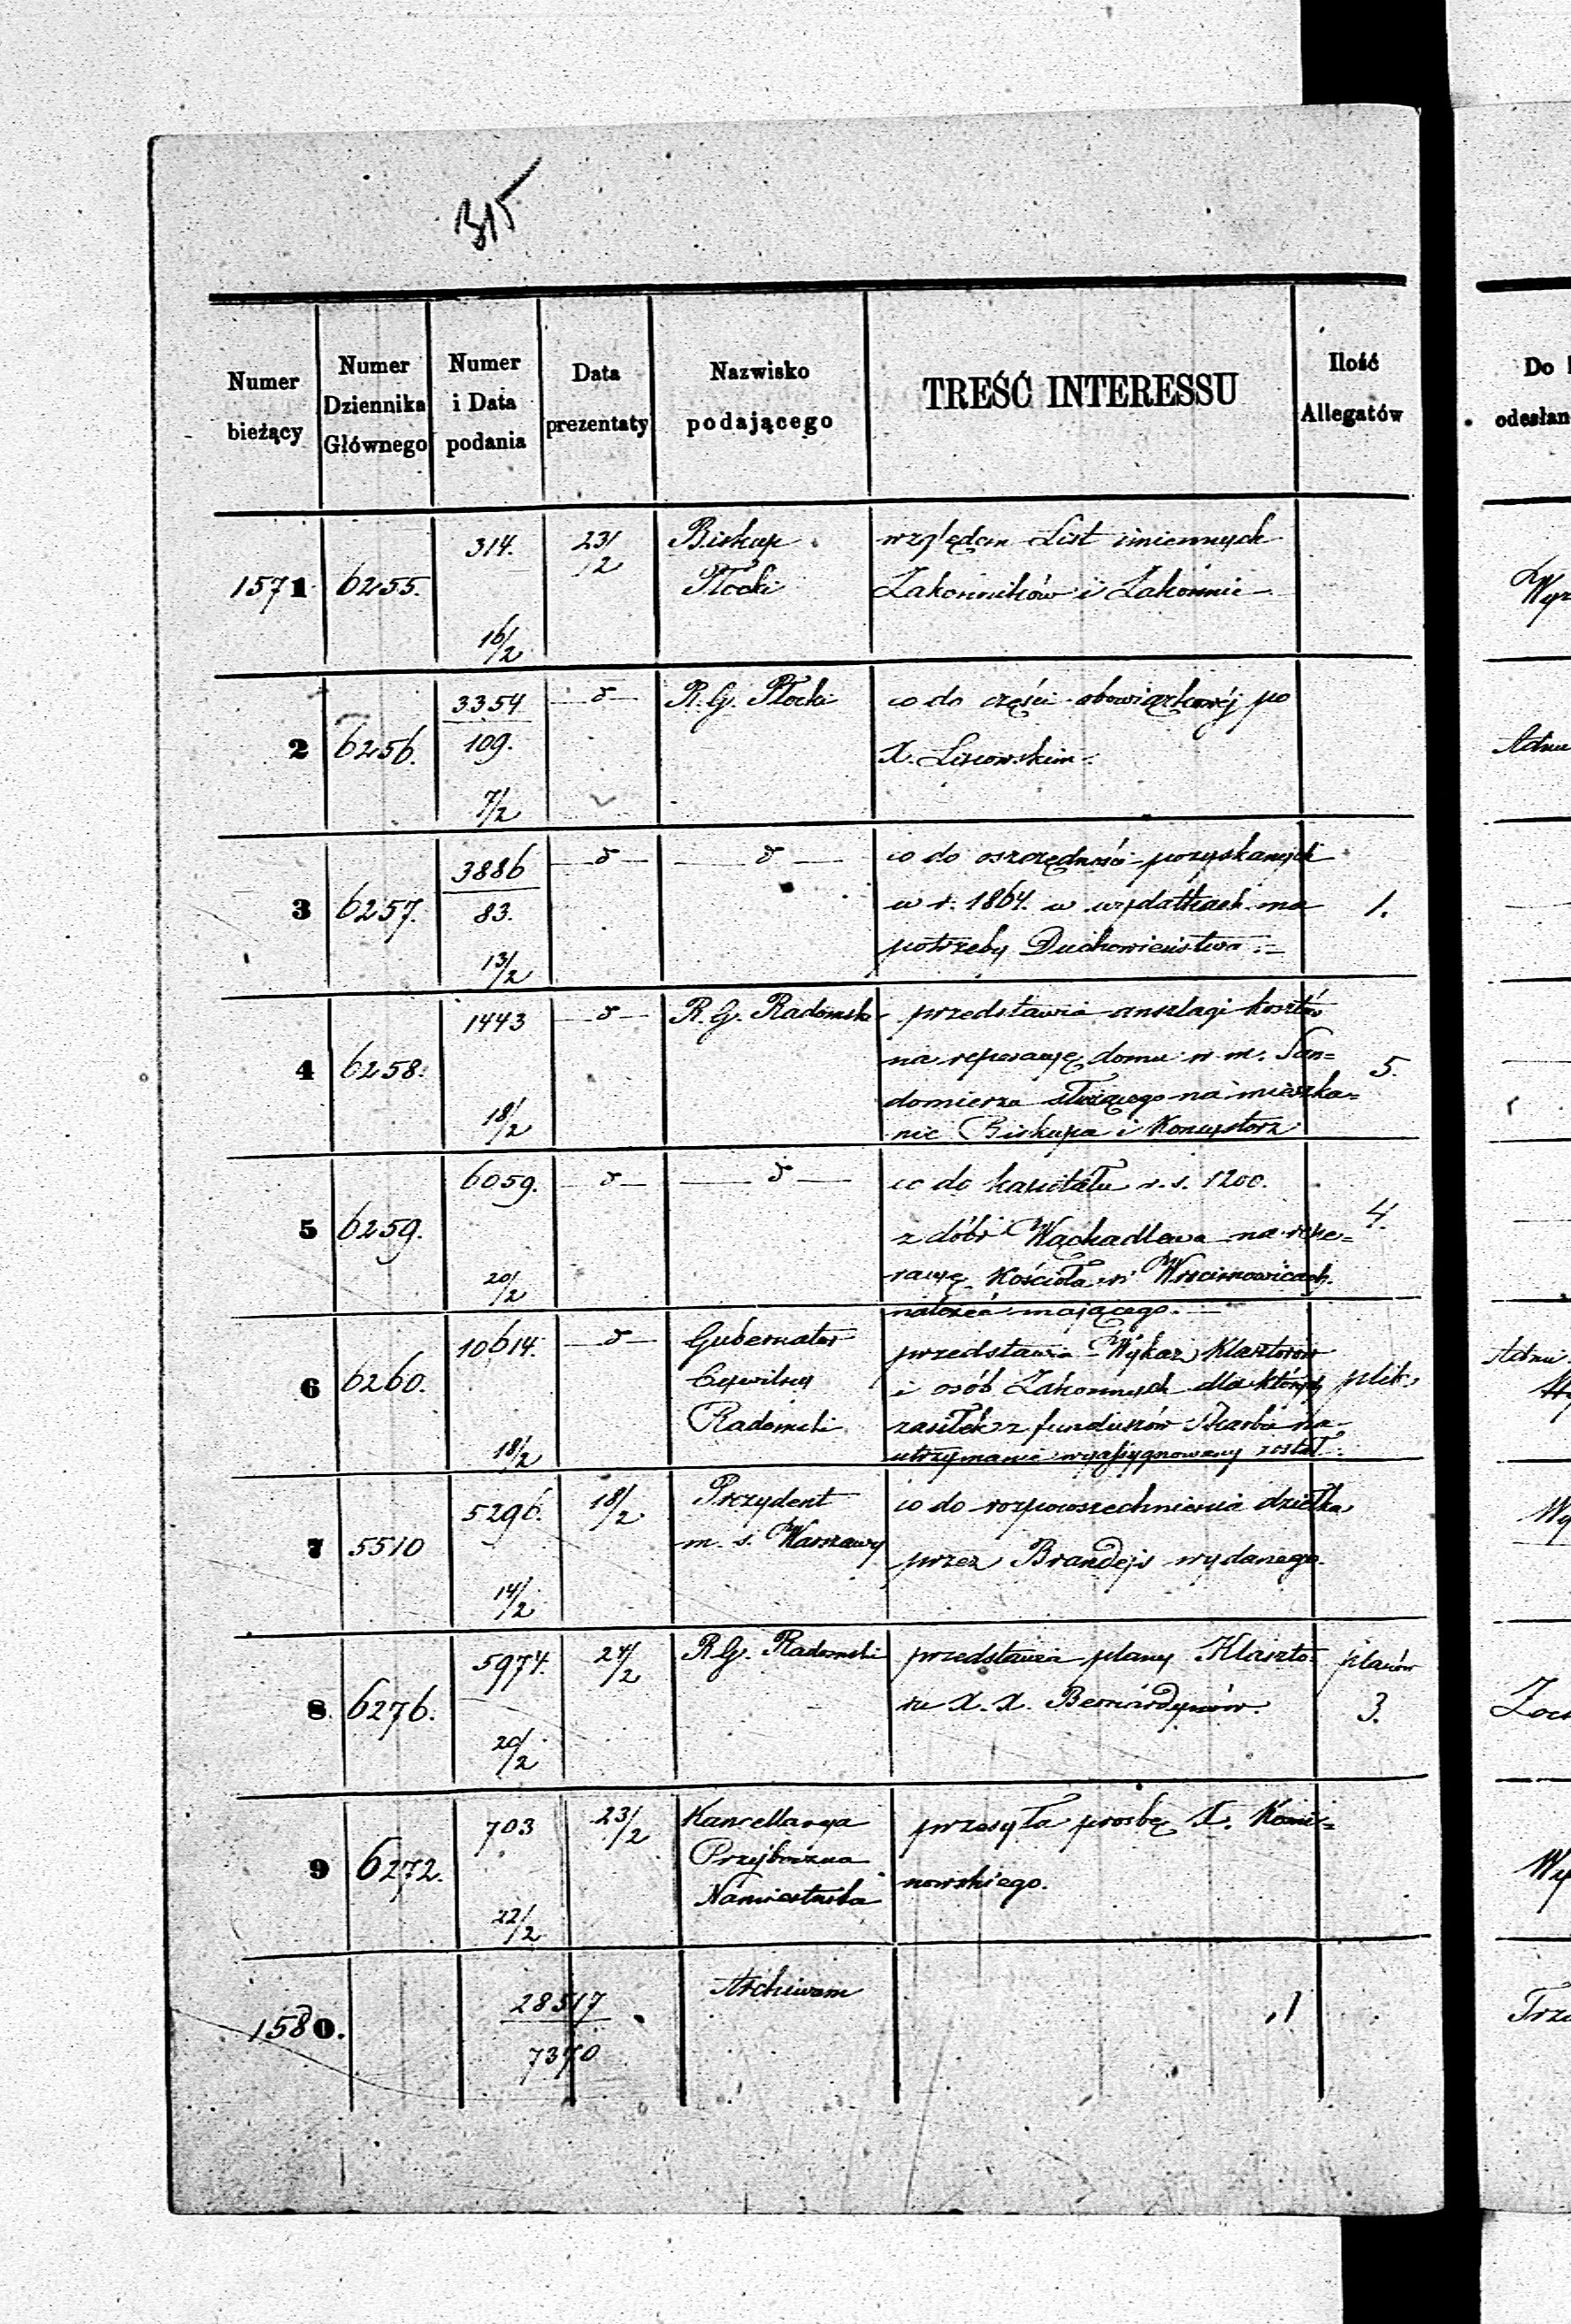 315
Numer bieżący
Numer Dziennika Głównego
Numer i Data podania
Data prezentaty
Nazwisko podającego
TREŚĆ INTERESSU
Ilość Allegatów
Do
odesłan
1571 6255. 314. 16/2 23/2 Biskup Płocki
względem List imiennych
Zakonników i Zakonnic
2 6256. 3354 109. 7/2 —d— R. G. Płocki
co do części obowiązkowéj po
X. Lisowskim.
3 6257. 3886 83. 13/2 —d— —d—
co do oszczędności pozyskanych
w r. 1864. w wydatkach na
potrzeby Duchowieństwa.
1.
4 6258. 1443 18/2 —d— R. G. Radomski
przedstawia anszlagi kosztów
na reperacyę domu w m. San=
domierzu służącego na mieszka=
nie Biskupa i Konsystorz
5.
5 6259. 6059. 20/2 —d— —d—
co do kapitału r. s. 1200.
z dóbr Wąchadlowa na repe=
racyę Kościoła w
należeć mającego.
4.
6 6260. 10614. 18/2 —d— Gubernator Cywilny Radomski
przedstawia Wykaz Klasztorów
i osób Zakonnych dla których
zasiłek z funduszów Skarbu na
utrzymanie wyassygnowany został.
plik.
7 5510 5296. 14/2 18/2 Prezydent m. s. Warszawy
co do rozpowszechnienia dziełka
przez Brandejs wydanego.
8 6276. 5974. 20/2 24/2 R. G. Radomski
przedstawia plany Klaszto=
ru X. X. Bernardynów.
planów 3.
9 6272. 703 22/2 23/2 Kancellarya Przyboczna Namiestnika
przesyła prośbę X.
nowskiego.
1580. 28517 7370 Archiwum